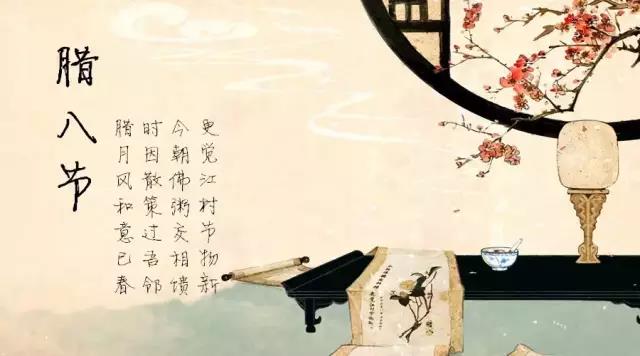 腊八节
腊月风和意已春
时因散策过吾邻
今朝佛粥交相馈
更觉江村节物新